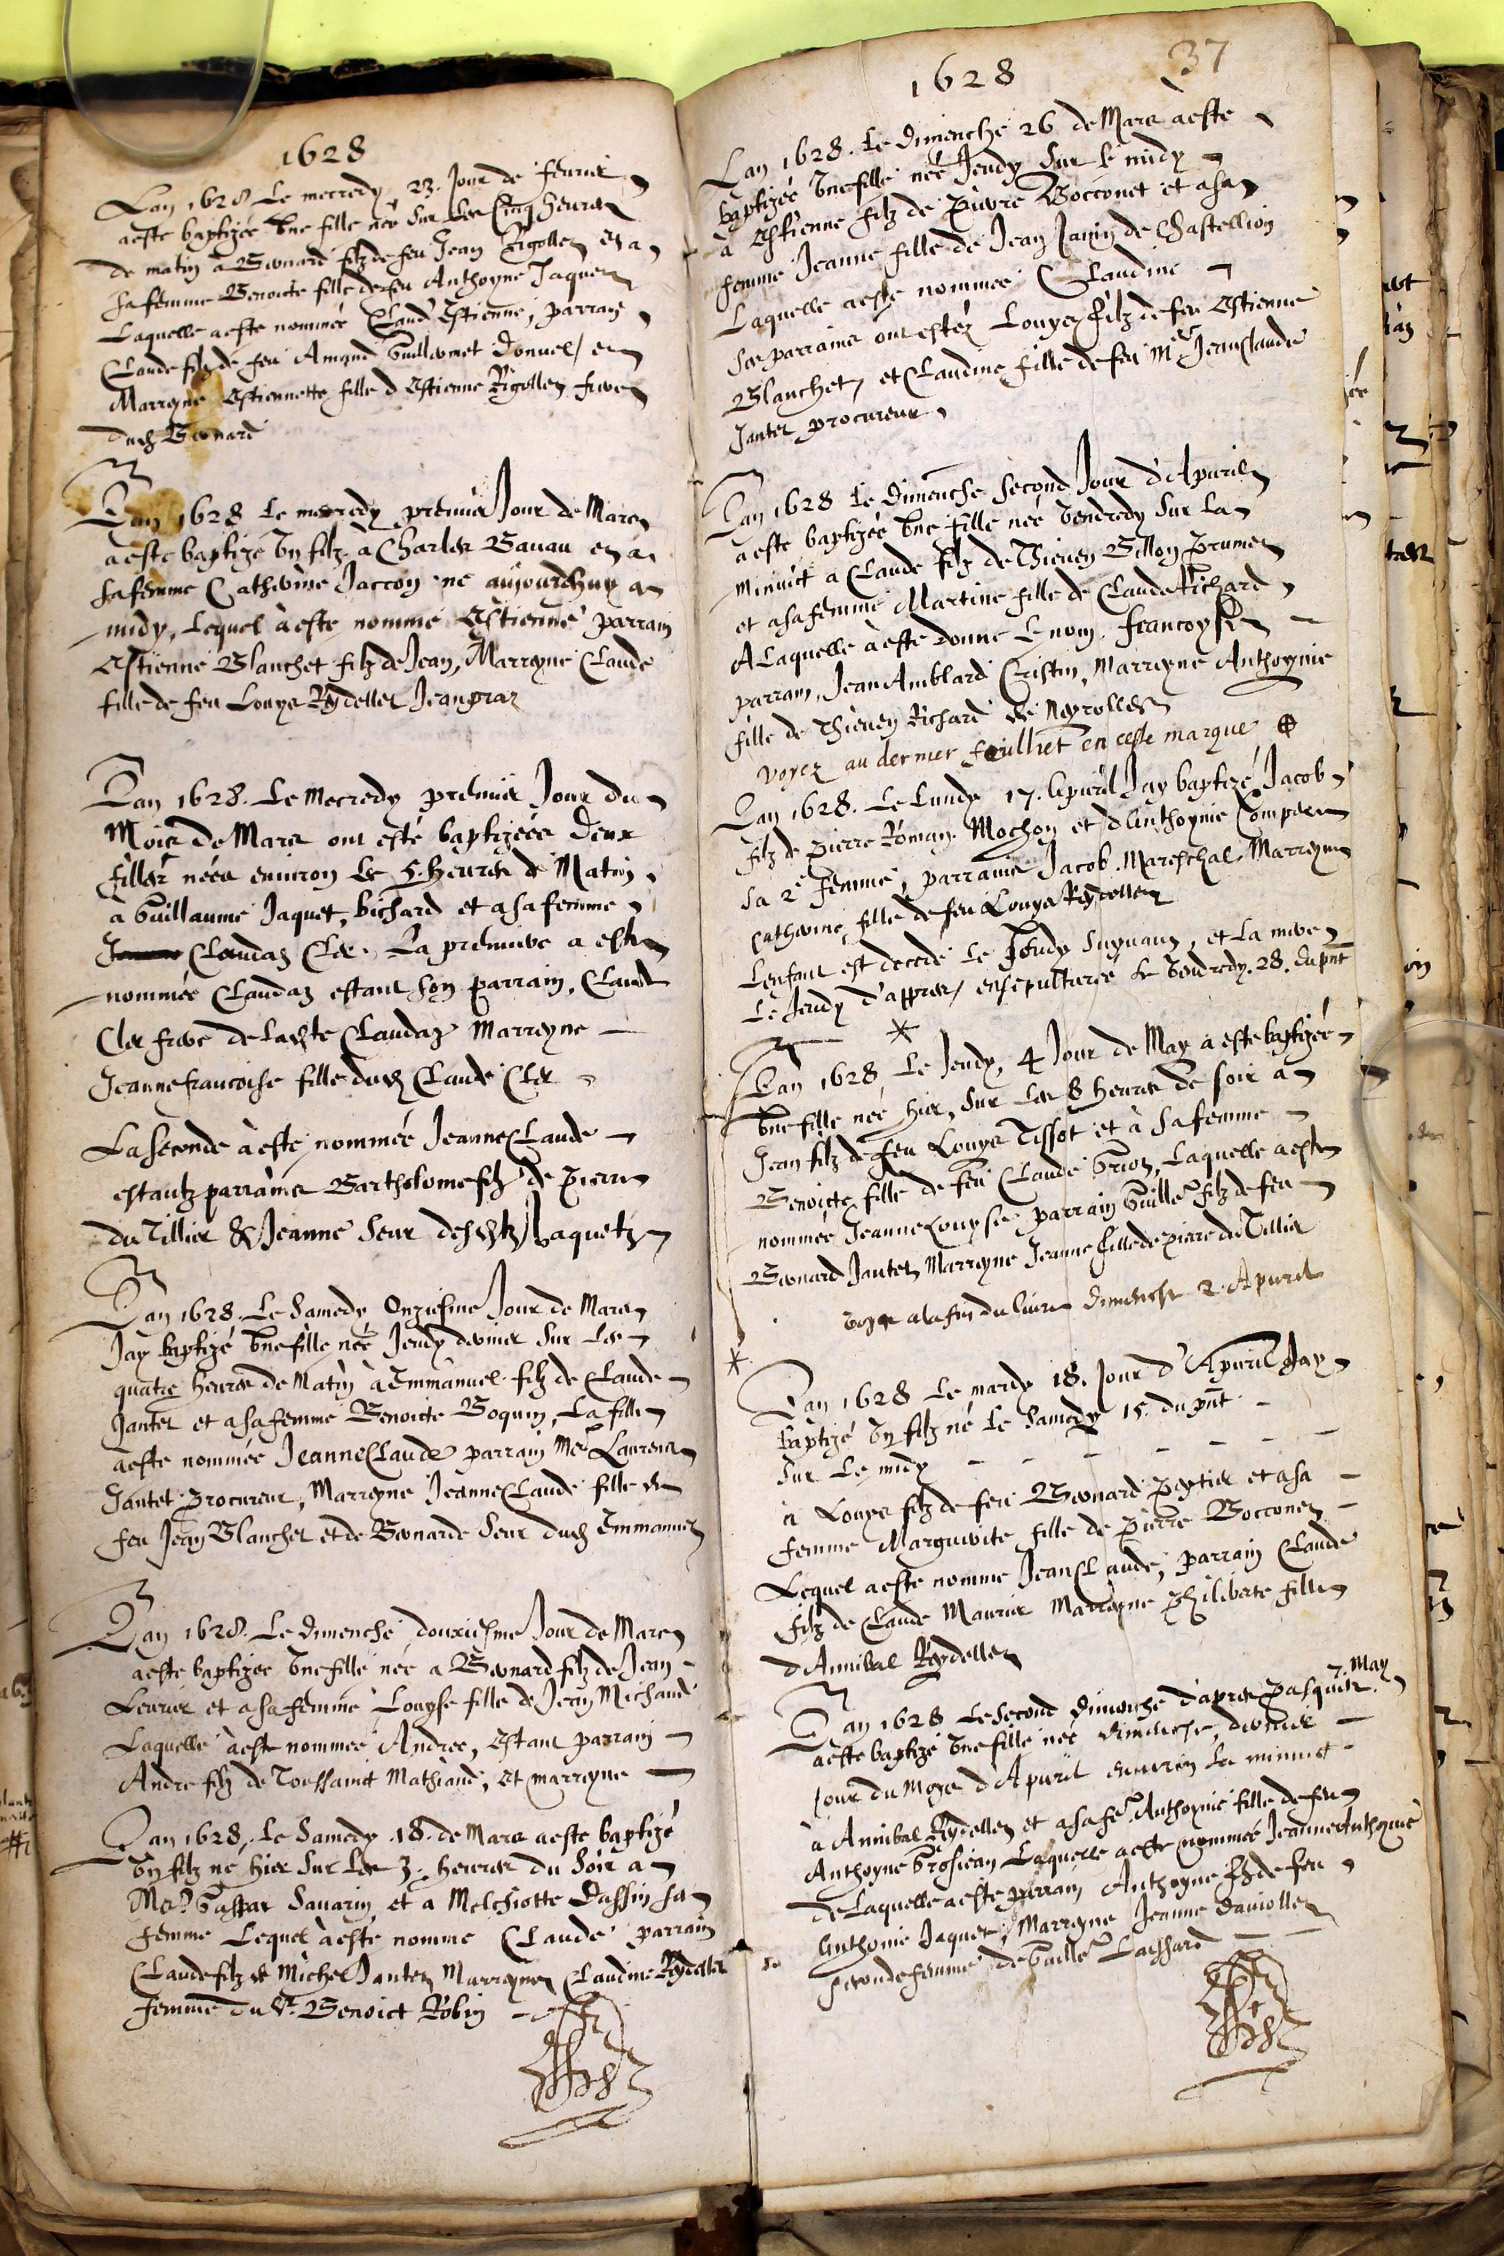 1628
Lan 1628 Le mecredy 23. Jour de feurier
aeste baptizée Vne fille née sur les Cinq heures
de matin à Bernard filz de feu Jean Rigollet et a
sa femme Benoicte fille de feu Anthoyne Jaquet
Laquelle aeste nommée Claud Estienne, parrain
Claude filz de feu Amand Guillermet Donuel, et
Marreyne Estiennette fille d Estienne Rigollet frere
dud Bernard
Lan 1628 Le mecredy premier Jour de Mars
à este baptizé Vn filz à Charles Bauau et à
sa femme Catherine Jaccon né aujourdhuy a
midy, Lequel à este nommé Estienne parrain
Estienne Blanchet filz de Jean, Marreyne Claude
fille de feu Louys Reydellet Jeangraz
Lan 1628. Le Mecredy premier Jour du
Mois de Mars ont esté baptizées Deux
filles nées enuiron les 5. heures de Matin
à Guillaume Jaquet, bichard et asa femme
Claudaz Cler. La premiere a este
nommée Claudaz estant son parrain, Claude
Cler frere de Ladte Claudaz Marreyne
Jeannefrancoise fille dud Claude Cler
La seconde à este nommée JeanneClaude
estantz parrains Bartholome filz de Pierre
du Tillier & Jeanne seur desdtz Jaquetz
Lan 1628. Le Samedy Onziesme Jour de Mars
Jay baptizé Vne fille née Jeudy dernier sur les
quatre heures de Matin à Emmanuel filz de Claude
Jantet et asa femme Benoicte Boquin, La fille
aeste nommée JeanneClaude parrain Me Laurens
Jantet procureur, Marreyne JeanneClaude fille de
feu Jean Blanchet et de Bernarde seur dud Emmanuel
Lan 1628. Le dimenche douziesme Jour de Mars
aeste baptizee Vne fille née a Bernard filz de Jean
Leurier et asa femme Louyse fille de Jean Michaud
Laquelle àeste nommée Andree, Estant parrain
Andre filz de Toussainct Mathiand, Et marreyne
Lan 1628, Le Samedy .18. de Mars aeste baptizé
Vn filz né hier sur les 3. heures du Soir a
Me Gaspar Sauarin et a Melchiotte Dassin sa
femme Lequel à esté nomme Claude parrain
Claude filz de Michel Jantet Marreyne Claudine Reydellet
femme du Sr Benoict Robin
1628
37
Lan 1628. Le Dimenche 26 de Mars àeste
baptizée Vne fille née Jeudy Sur le midy
à Estienne filz de Pierre Bocconet et asa
femme Jeanne fille de Jean Janin de Chastellion
Laquelle aeste nommée Claudine
Ses parrains ont estéz Louys filz de feu Estienne
Blanchet, et Claudine fille de feu Me JeanClaude
Jantet procureur
Lan 1628 Le Dimenche second Jour d'Apuril
a este baptizée Vne fille née Vendredy sur La
minuict a Claude filz de Thieuen Billon Prumet
et asa femme Martine fille de Claude Richard
A Laquelle à este donne Le nom francoyse
parrain, Jean Amblard Cristin, Marreyne Anthoynie
fille de Thieuen Richard de Neyrolles
voyez au dernier feulliet en ceste marque ⊕
Lan 1628. Le Lundy 17. Apuril Jay baptizé Jacob
filz de pierre Roman Mochon et d'Anthoynie Compere
Sa 2e femme, parrains Jacob Mareschal Marreyne
Catherine fille de feu Louys Reydellet
Lenfant est decedé Le Jeudy suyuant, et La mere
Le Jeudy d'appres, ensepulturée Le Vendredy. 28. dupnt
*
Lan 1628 Le Jeudy, 4 Jour de May à este baptizée
Vne fille née hier, sur Les 8 heures de soir à
Jean filz de feu Louys Tissot et à Sa femme
Benoicte fille de feu Claude Griot, Laquelle aeste
nommée JeanneLouyse parrain Guille filz de feu
Bernard Jantet Marreyne Jeanne fille de pierre du Tillier
voye ala fin du liure Dimenche 2. Apuril
*
Lan 1628 Le mardy 18. Jour d'Apuril Jay
baptizé Vn filz né Le Samedy 15. du pnt
sur Le midy
a Louys filz de feu Bernard Peytier et asa
femme Marguerite fille de Pierre Bocconet
Lequel aeste nomme JeanClaude, parrain Claude
filz de Claude Maurier Marreyne Philiberte fille
d'Annibal Reydellet
7. May
Lan 1628 Le second Dimenche d'apres Pasques
aeste baptizé Vne fille née dimenche, dernier
Jour du Moys d'Apuril enuiron La minuict
à Annibal Reydellet et asa fe Anthoynie fille de feu
Anthoyne Grosjean Laquelle aeste nommée JeanneAnthoynie
de Laquelle aeste parrain Anthoyne filz de feu
Anthoine Jaquet, Marreyne Jeanne Dauiollet
seconde femme de Guille Laissard